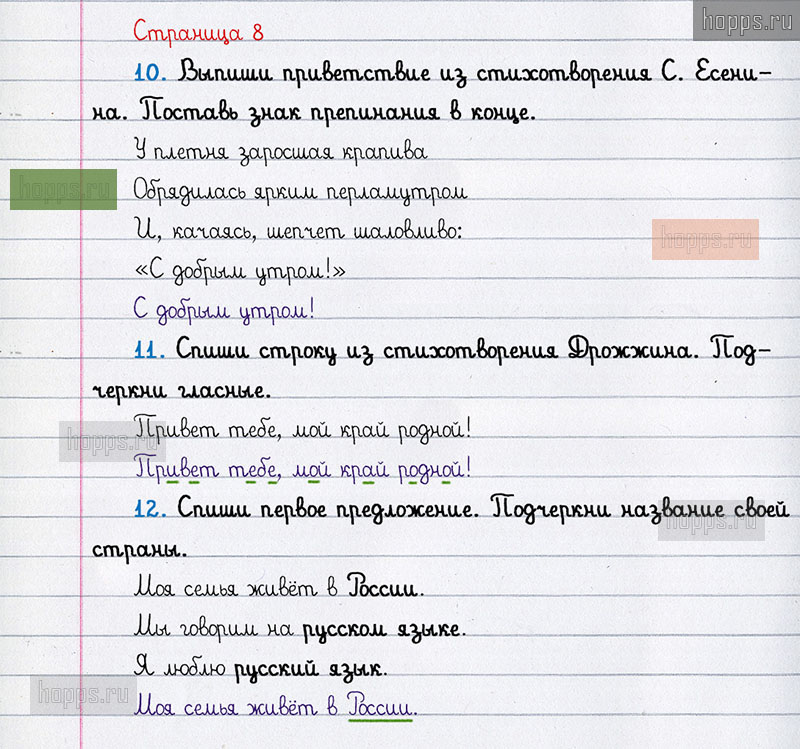 hopps.ru
Страница 8
10. Выпиши приветствие из стихотворения С. Есени-
на. Поставь знак препинания в конце.
У плетня заросшая крапива
hopps.ru
Обрядилась ярким перламутром
И, качаясь, шепчет шаловливо:
hopps.ru
«С добрым утром!»
С добрым утром!
11. Спиши строку из стихотворения Дрожжина. Под-
черкни гласные.
Привет тебе, мой край родной!
hopps.ru
Привет тебе, мой край родной!
12. Спиши первое предложение. Подчеркни название своей
hopps.ru
страны.
Моя семья живёт в России.
Мы говорим на русском языке.
Я люблю русский язык.
hopps.ru
Моя семья живёт в России.